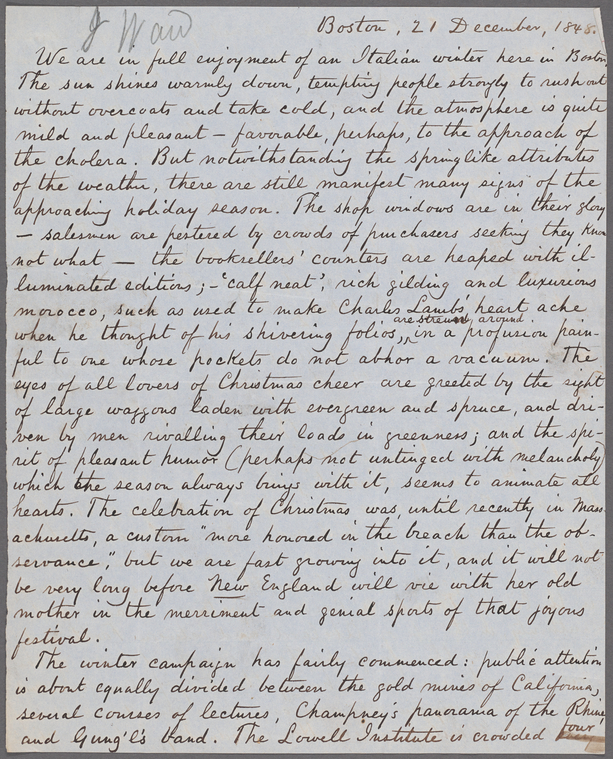 J Ward
Boston, 21 December, 1848.
We are in full enjoyment of an Italian winter here in Boston.
The sun shines warmly down, tempting people strongly to rush out
without overcoats and take cold, and the atmosphere is quite
mild and pleasant — favorable, perhaps, to the approach of
the cholera. But notwithstanding the springlike attributes
of the weather, there are still manifest many signs of the
approaching holiday season. The shop windows are in their glory
— salesmen are pestered by crowds of purchasers seeking they know
not what — the booksellers' counters are heaped with il-
luminated editions; - 'calf neat', rich gilding and luxurious
morocco, such as used to make Charles Lamb's heart ache
are strewed around
when he thought of his shivering folios, in a profusion pain-
ful to one whose pockets do not abhor a vacuum. The
eyes of all lovers of Christmas cheer are greeted by the sight
of large waggons laden with evergreen and spruce, and dri-
ven by men rivalling their loads in greenness; and the spi-
rit of pleasant humor (perhaps not untinged with melancholy)
which the season always brings with it, seems to animate all
hearts. The celebration of Christmas was, until recently in Mass-
achusetts, a custom "more honored in the breach than the ob-
servance," but we are fast growing into it, and it will not
be very long before New England will vie with her old
mother in the merriment and genial sports of that joyous
festival.
The winter campaign has fairly commenced: public attention
is about equally divided between the gold mines of California,
several courses of lectures, Champney's panorama of the Rhine
and Gung'l's band. The Lowell Institute is crowded four